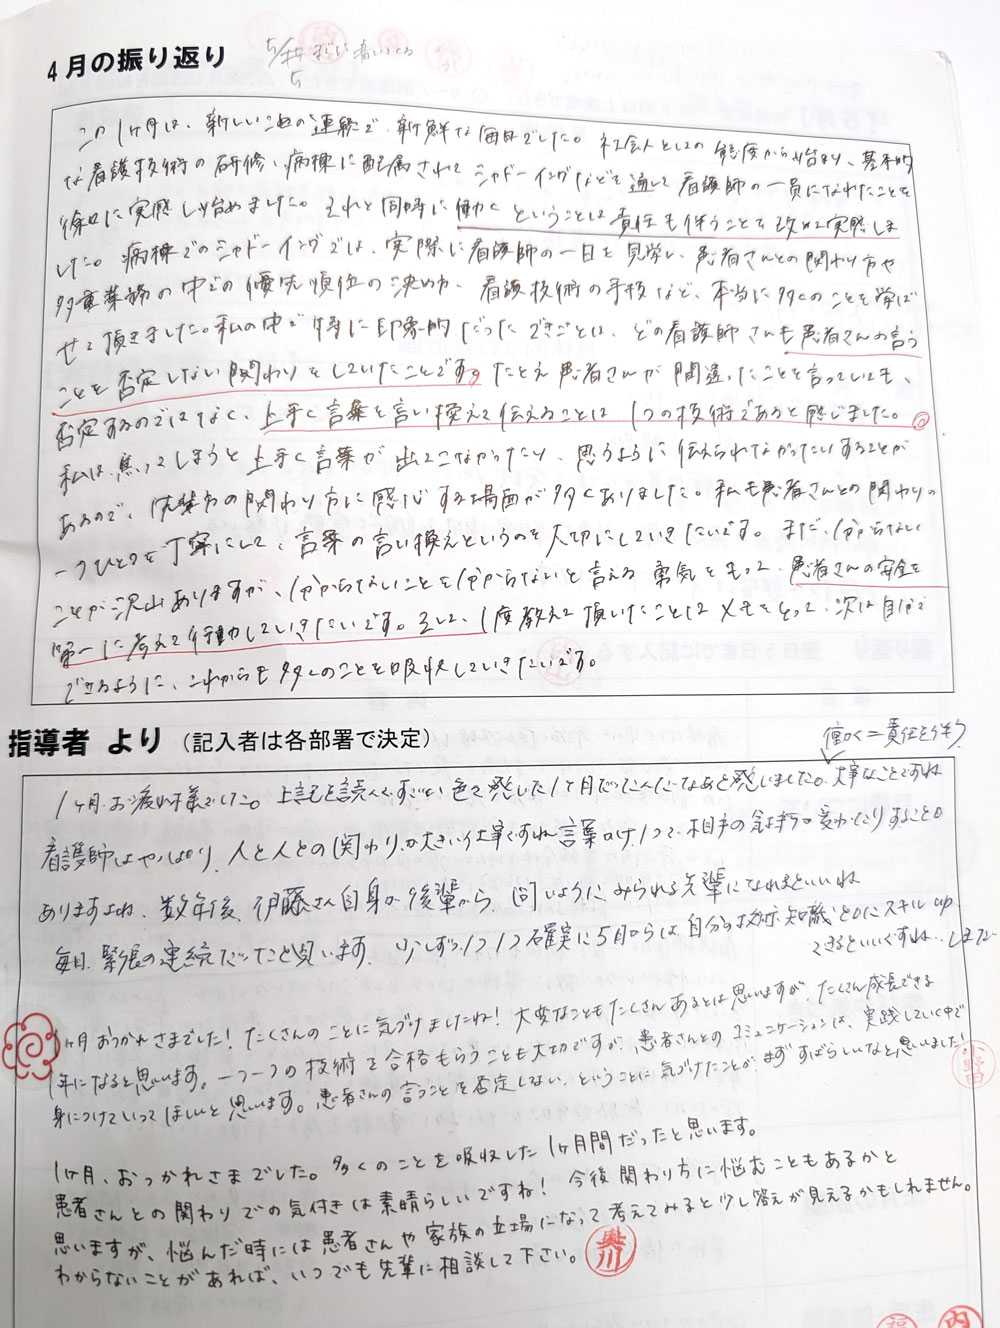 4月の振り返り
この1ヶ月は、新しいことの連続で、新鮮な毎日でした。社会人としての態度から始まり、基本的
な看護技術の研修、病棟に配属されてシャドーイングなどを通して看護師の一員になれたことを
徐々に実感し始めました。それと同時に働くということは責任も伴うことを改めて実感しま
した。病棟でのシャドーイングでは、実際に看護師の一日を見学し、患者さんとの関わり方や
多重業務の中での優先順位の決め方、看護技術の手技など、本当に多くのことを学ば
せて頂きました。私の中で特に印象的だったできごとは、どの看護師さんも患者さんの言う
ことを否定しない関わりをしていたことです。たとえ患者さんが間違ったことを言っていても、
否定するのではなく、上手く言葉を言い換えて伝えることは1つの技術であると感じました。
私は、焦ってしまうと上手く言葉が出てこなかったり、思うように伝えられなかったりすることが
あるので、先輩方の関わり方に感心する場面が多くありました。私も患者さんとの関わりの
一つひとつを丁寧にして、言葉の言い換えというのを大切にしていきたいです。まだ、分からない
ことが沢山ありますが、分からないことを分からないと言える勇気をもって、患者さんの安全を
第一に考えて行動していきたいです。そして、1度教えて頂いたことはメモをとって、次は自分で
できるように、これからも多くのことを吸収していきたいです。
指導者 より (記入者は各部署で決定)
働く=責任を伴う
1ヶ月お疲れ様でした。上記を読んですごい色々感じた1ヶ月だったんだーなあと感じました。大事なことですね
看護師はやっぱり、人と人との関わりが大きい仕事ですね 言葉かけ1つで、相手の気持ちも変わったりすること
ありますよね、数年後、伊藤さん自身が後輩から、同じようにみられる先輩になれるといいね
毎日、緊張の連続だったと思います。少しずつ1つ1つ確実に5月からは自分の技術、知識とのにスキルup
できるといいですね…
1ヶ月おつかれさまでした! たくさんのことに気づけましたね! 大変なこともたくさんあるとは思いますが たくさん成長できる
1年になると思います。一つ一つの技術を合格もらうことも大切ですが、患者さんとのコミュニケーションは、実践していく中で
身につけていってほしいと思います。患者さんの言うことを否定しない、ということに気づけたことが、まずすばらしいなと思いました!
野田
1ヶ月、おつかれさまでした。多くのことを吸収した1ヶ月間だったと思います。
患者さんとの関わりでの気付きは素晴らしいですね! 今後関わり方に悩むこともあるかと
思いますが、悩んだ時には患者さんや家族の立場になって考えてみると少し答えが見えるかもしれません。
わからないことがあれば、いつでも先輩に相談して下さい。
奥川